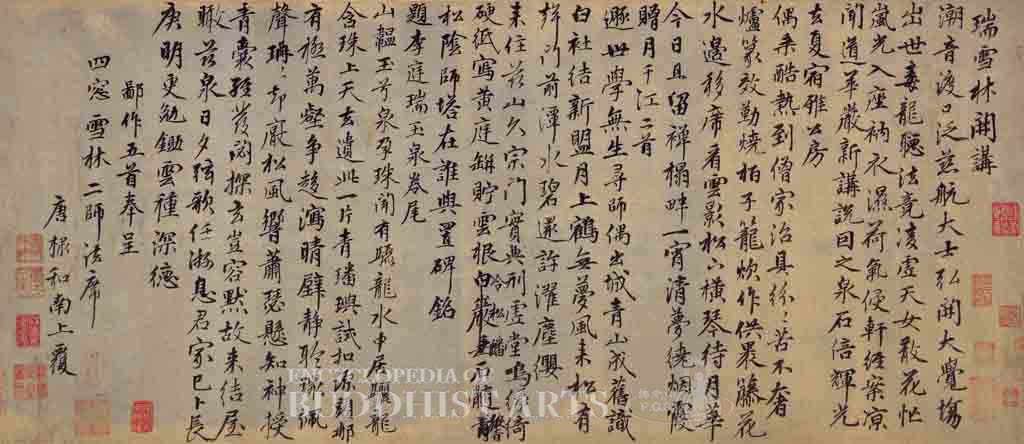 瑞雪林開講
潮音渡口泛慈航大士弘開大覺場
出世毒龍聽法竟凌虛天女散花忙
嵐光入座衲衣濕荷氣侵軒經案凉
聞道華嚴新講說因之泉石倍輝光
去夏宿雅公房
偶乘酷熱到僧家治具紛紛苦不奢
爐篆效勤燒柏子籠炊作供裹藤花
水邊移席看雲影松下橫琴待月華
今日且留禪榻畔一宵清夢繞烟霞
贈月千江二首
遯世學無生尋師偶出城青山成舊識
白社結新盟月上鶴無夢風来松有
門前潭水碧還許濯塵纓
来住茲山久宗門實典刑虛堂鳴
硬紙寫黃庭缾貯雲根白
松陰師塔在誰與置碑銘
題李庭瑞玉泉卷尾
山韞玉兮泉孕珠聞有驪龍水中居驪龍
含珠上天去遺此一片青璠璵試扣
有極萬壑爭趨瀉晴壁靜聆環珮
聲珊珊却厭松風響蕭瑟懸知神授
青囊經發閟探玄豈容默故来結屋
瞰茲泉日夕弦歌任游息君家已卜長
庚明更勉鋤雲種深德
鄙作五首奉呈
四窓雪林二師法席
唐棣和南上覆
ENCYCLOPEDIA OF
BUDDHIST ARTS